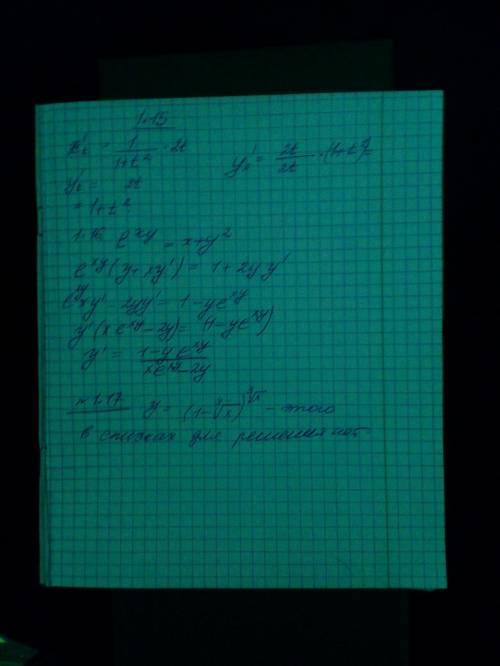 1.15
x't = 1/(1+t²) · 2t
y'x = 2t/2t · (1+t²) =
y't = 2t
= 1+t²
1.16 e^xy = x+y²
e^xy (y+xy') = 1+2y y'
e^xy xy' - 2yy' = 1-ye^xy
y'(xe^xy-2y) = (1-ye^xy)
y' = (1-ye^xy)/(xe^xy-2y)
№1.17 y = (1-∛x)^∛x - этого
в списках для решения нет